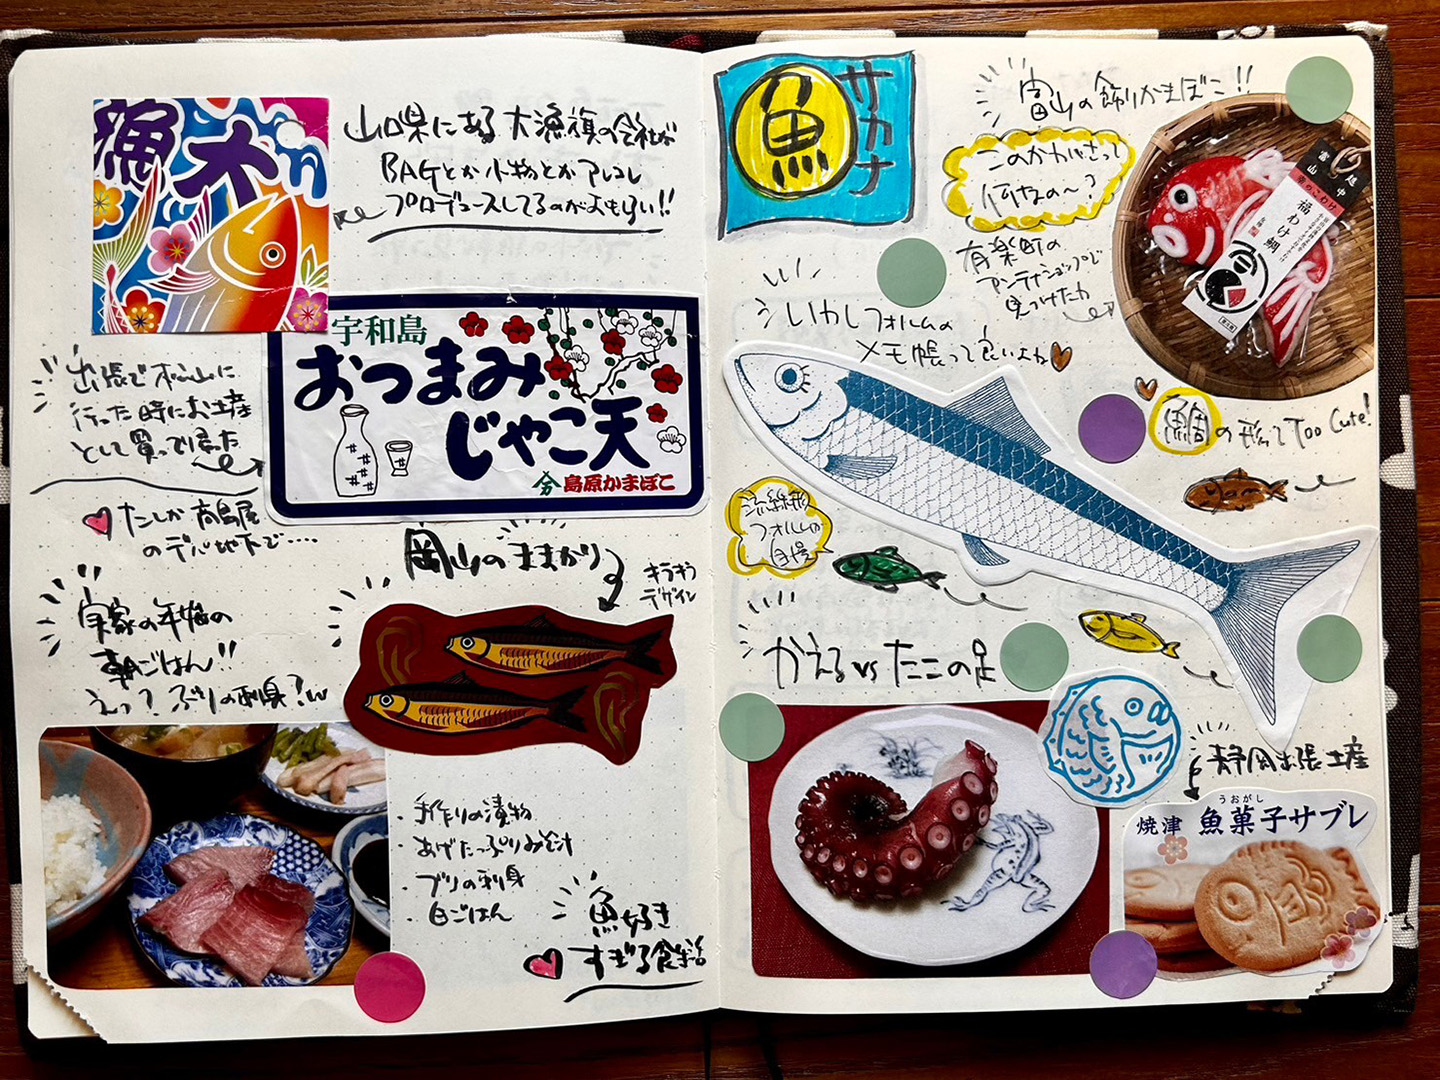 大漁
山口県にある大漁旗の会社が
BAGとか小物とかアレコレ
プロデュースしてるのがおもしろい!!
宇和島
おつまみ
じゃこ天
島原かまぼこ
出張で松山に
行った時にお土産
として買って帰った
たしか高島屋
のデパ地下で‥‥
岡山のままかり
キラキラ
デザイン
実家の年始の
朝ごはん!!
えっ?ぶりの刺身?w
・手作りの漬物
・あげたっぷりみそ汁
・ブリの刺身
・白ごはん
魚好き
すぎる食生活
魚
サカナ
富山の飾りかまぼこ!!
このかわいさって
何なの〜?
有楽町の
アンテナショップで
見つけたカ
越中
富山
幸のこわけ
福わけ鯛
いわしフォルムの
メモ帳って良いよね
鯛の形ってToo Cute!
流線形
フォルムが
自慢
かえるvsたこの足
静岡出張土産
うおがし
焼津 魚菓子サブレ